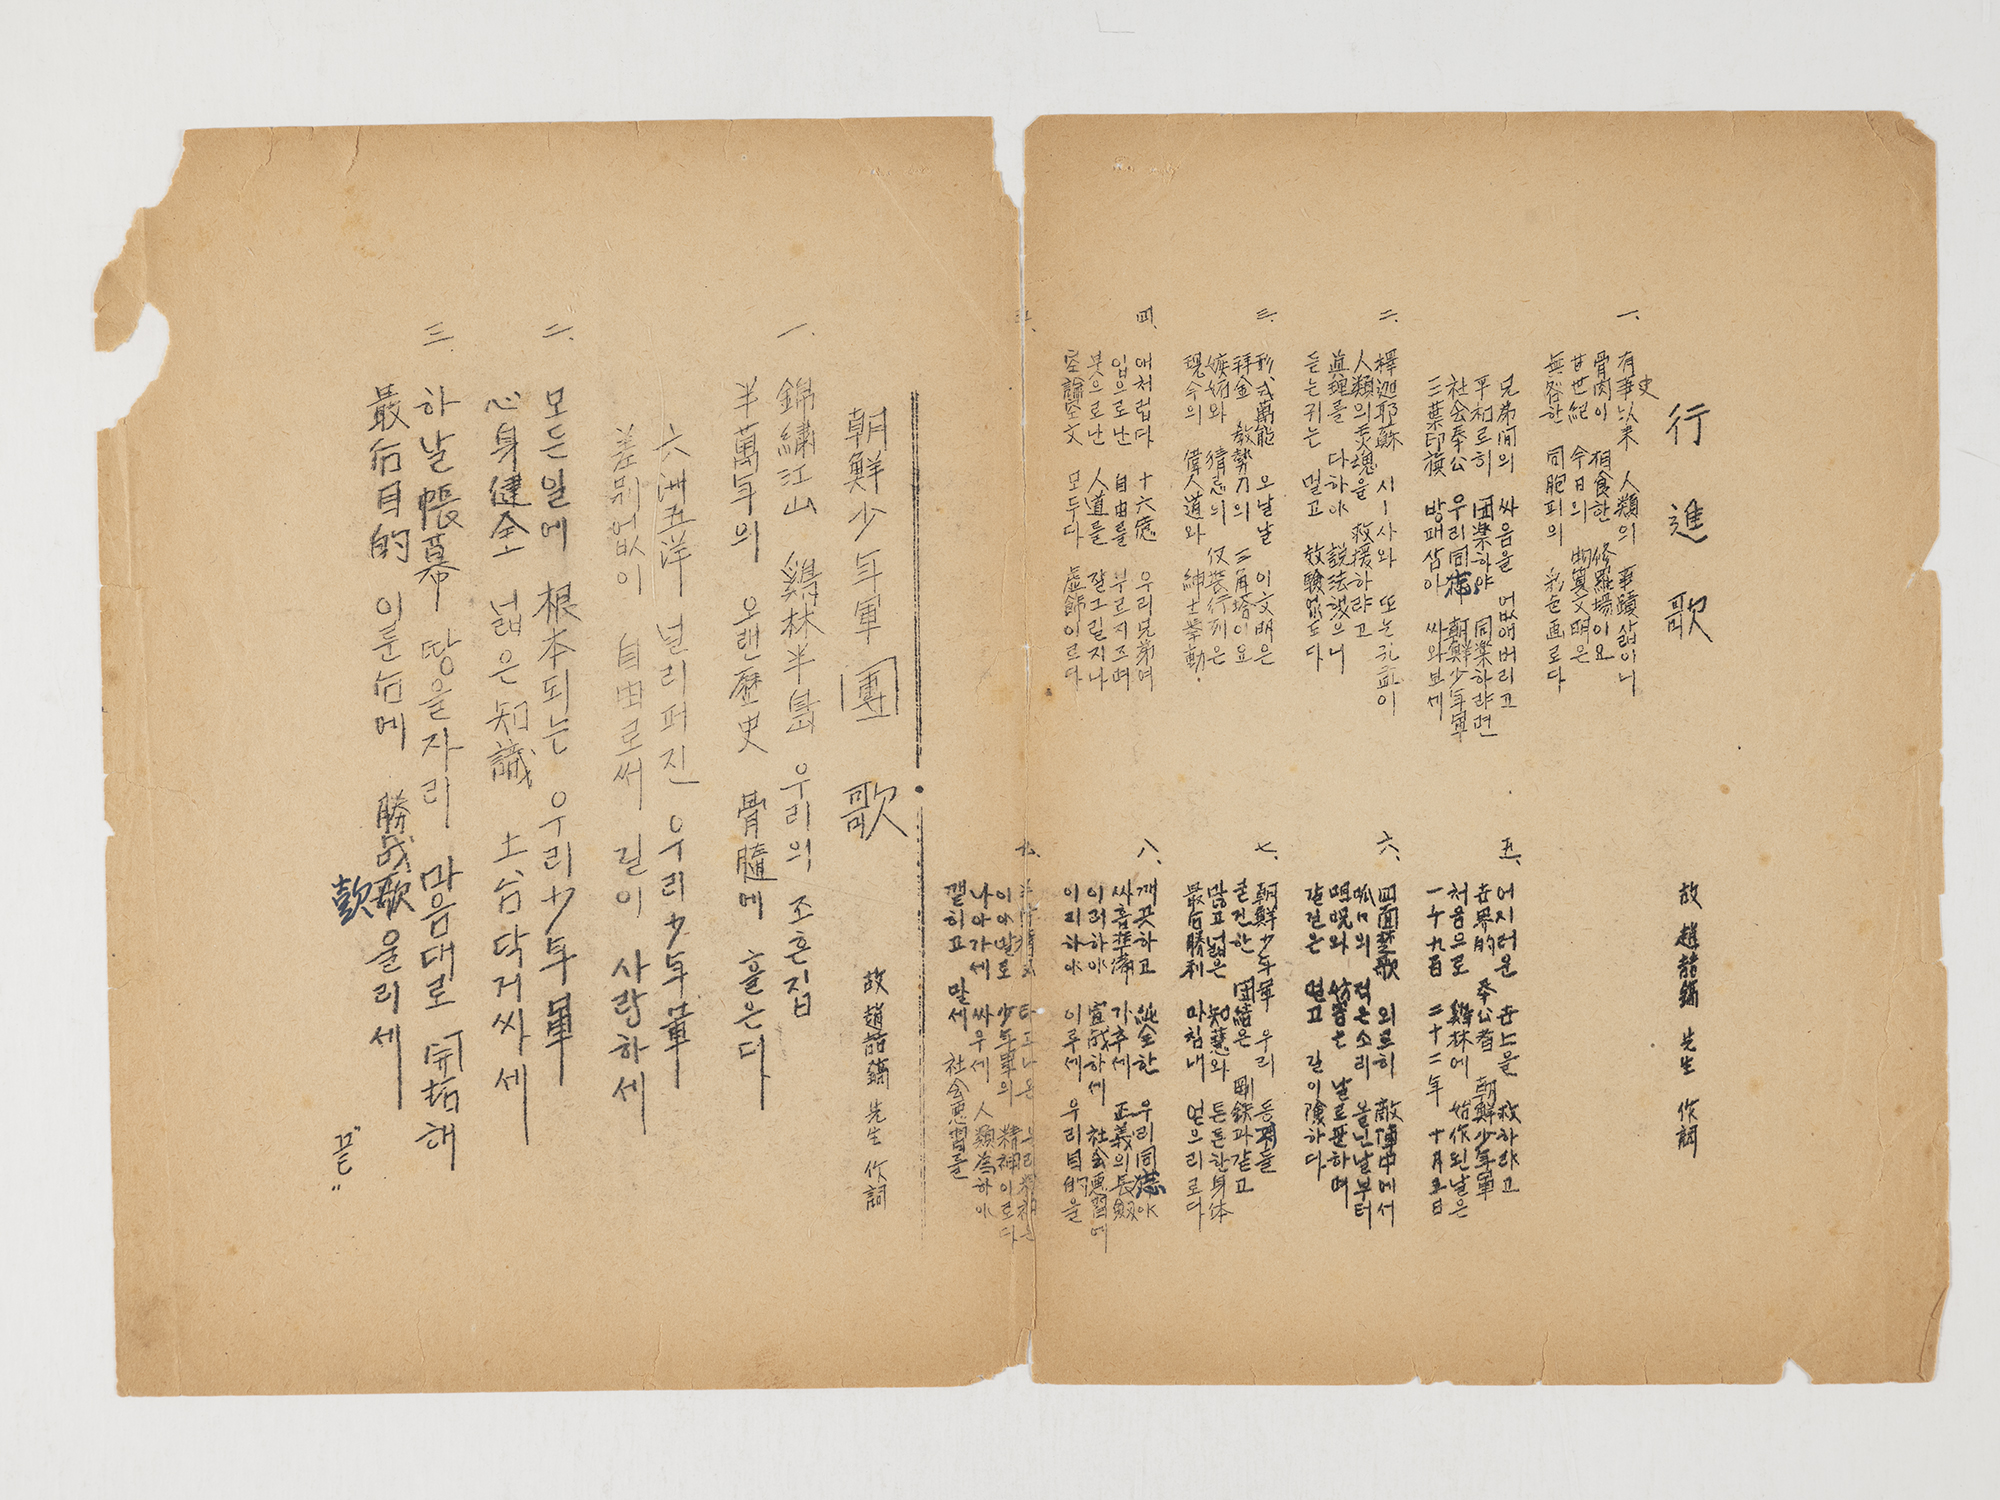 行進歌
故 趙喆鎬 先生 作詞
一、
有事史以来 人類의 事蹟삶이니
骨肉이 相食한 修羅場이요
廿世紀 今日의 物質文明은
無容한 同胞피의 彩色画로다
兄弟间의 싸음을 없애버리고
平和로히 団楽하야 同楽하랴면
社会奉公 우리同志 朝鮮少年軍
三葉印旗 방패삼아 싸와보세
二、
釋迦耶蘇 시-사와 또는 孔孟이
人類의灵魂을 救援하랴고
眞理를 다하야 説法했으니
듣는귀는 멀고 效験없도다
三、
形式萬能 오날날 이文明은
拜金 敎勢力의 三角塔이요
嫉妬와 猜忌의 仅装行列은
現今의 偉人道와 紳士擧動.
四、
애처럽다 十六億 우리兄弟여
입으로난 自由를 부르지즈며
붓으로난 人道를 잘그릴지나
空論空文 모두다 虛飾이르다
五、
어지러운 世上을 救하랴고
世界的 奉公者 朝鮮少年軍
처음으로 鷄林에 始作된날은
一千九百 二十二年 十月五日
六、
四面楚歌 외로히 敵陣中에서
呱口의 적은소리 올닌날부터
咀呪와 妨害는 날로판하며
갈길은 멀고 길이險하다
七、
朝鮮少年軍 우리 동관들
굳건한 団結은 剛鉄과같고
많고넓은 知慧와 튼튼한身体
最后勝利 마침내 얻으리로다
八、
깨끗하고 純全한 우리同志야
싸흠준備 가추세 正義의長劍
이러하야 宣戦하세 社会惡習에
이리하야 이루세 우리目的을
九、
이야말로 少年軍의 精神이로다
나아가세 싸우세 人類為하야
깰히고 말세 社会惡習를
朝鮮少年軍團歌
故 趙喆鎬 先生 作詞
一、
錦繡江山 鷄林半島 우리의 조흔집
半萬年의 오랜歷史 骨髓에 흘은다
六洲五洋 널리퍼진 우리少年軍
差別없이 自由로써 길이 사랑하세
二、
모든일에 根本되는 우리少年軍
心身健全 넓은知識 土台닥거싸세
三、
하날帳幕 땅을자리 마음대로 開拓해
最后目的 이룬后에 勝戦歌울리세
歌
끝〃